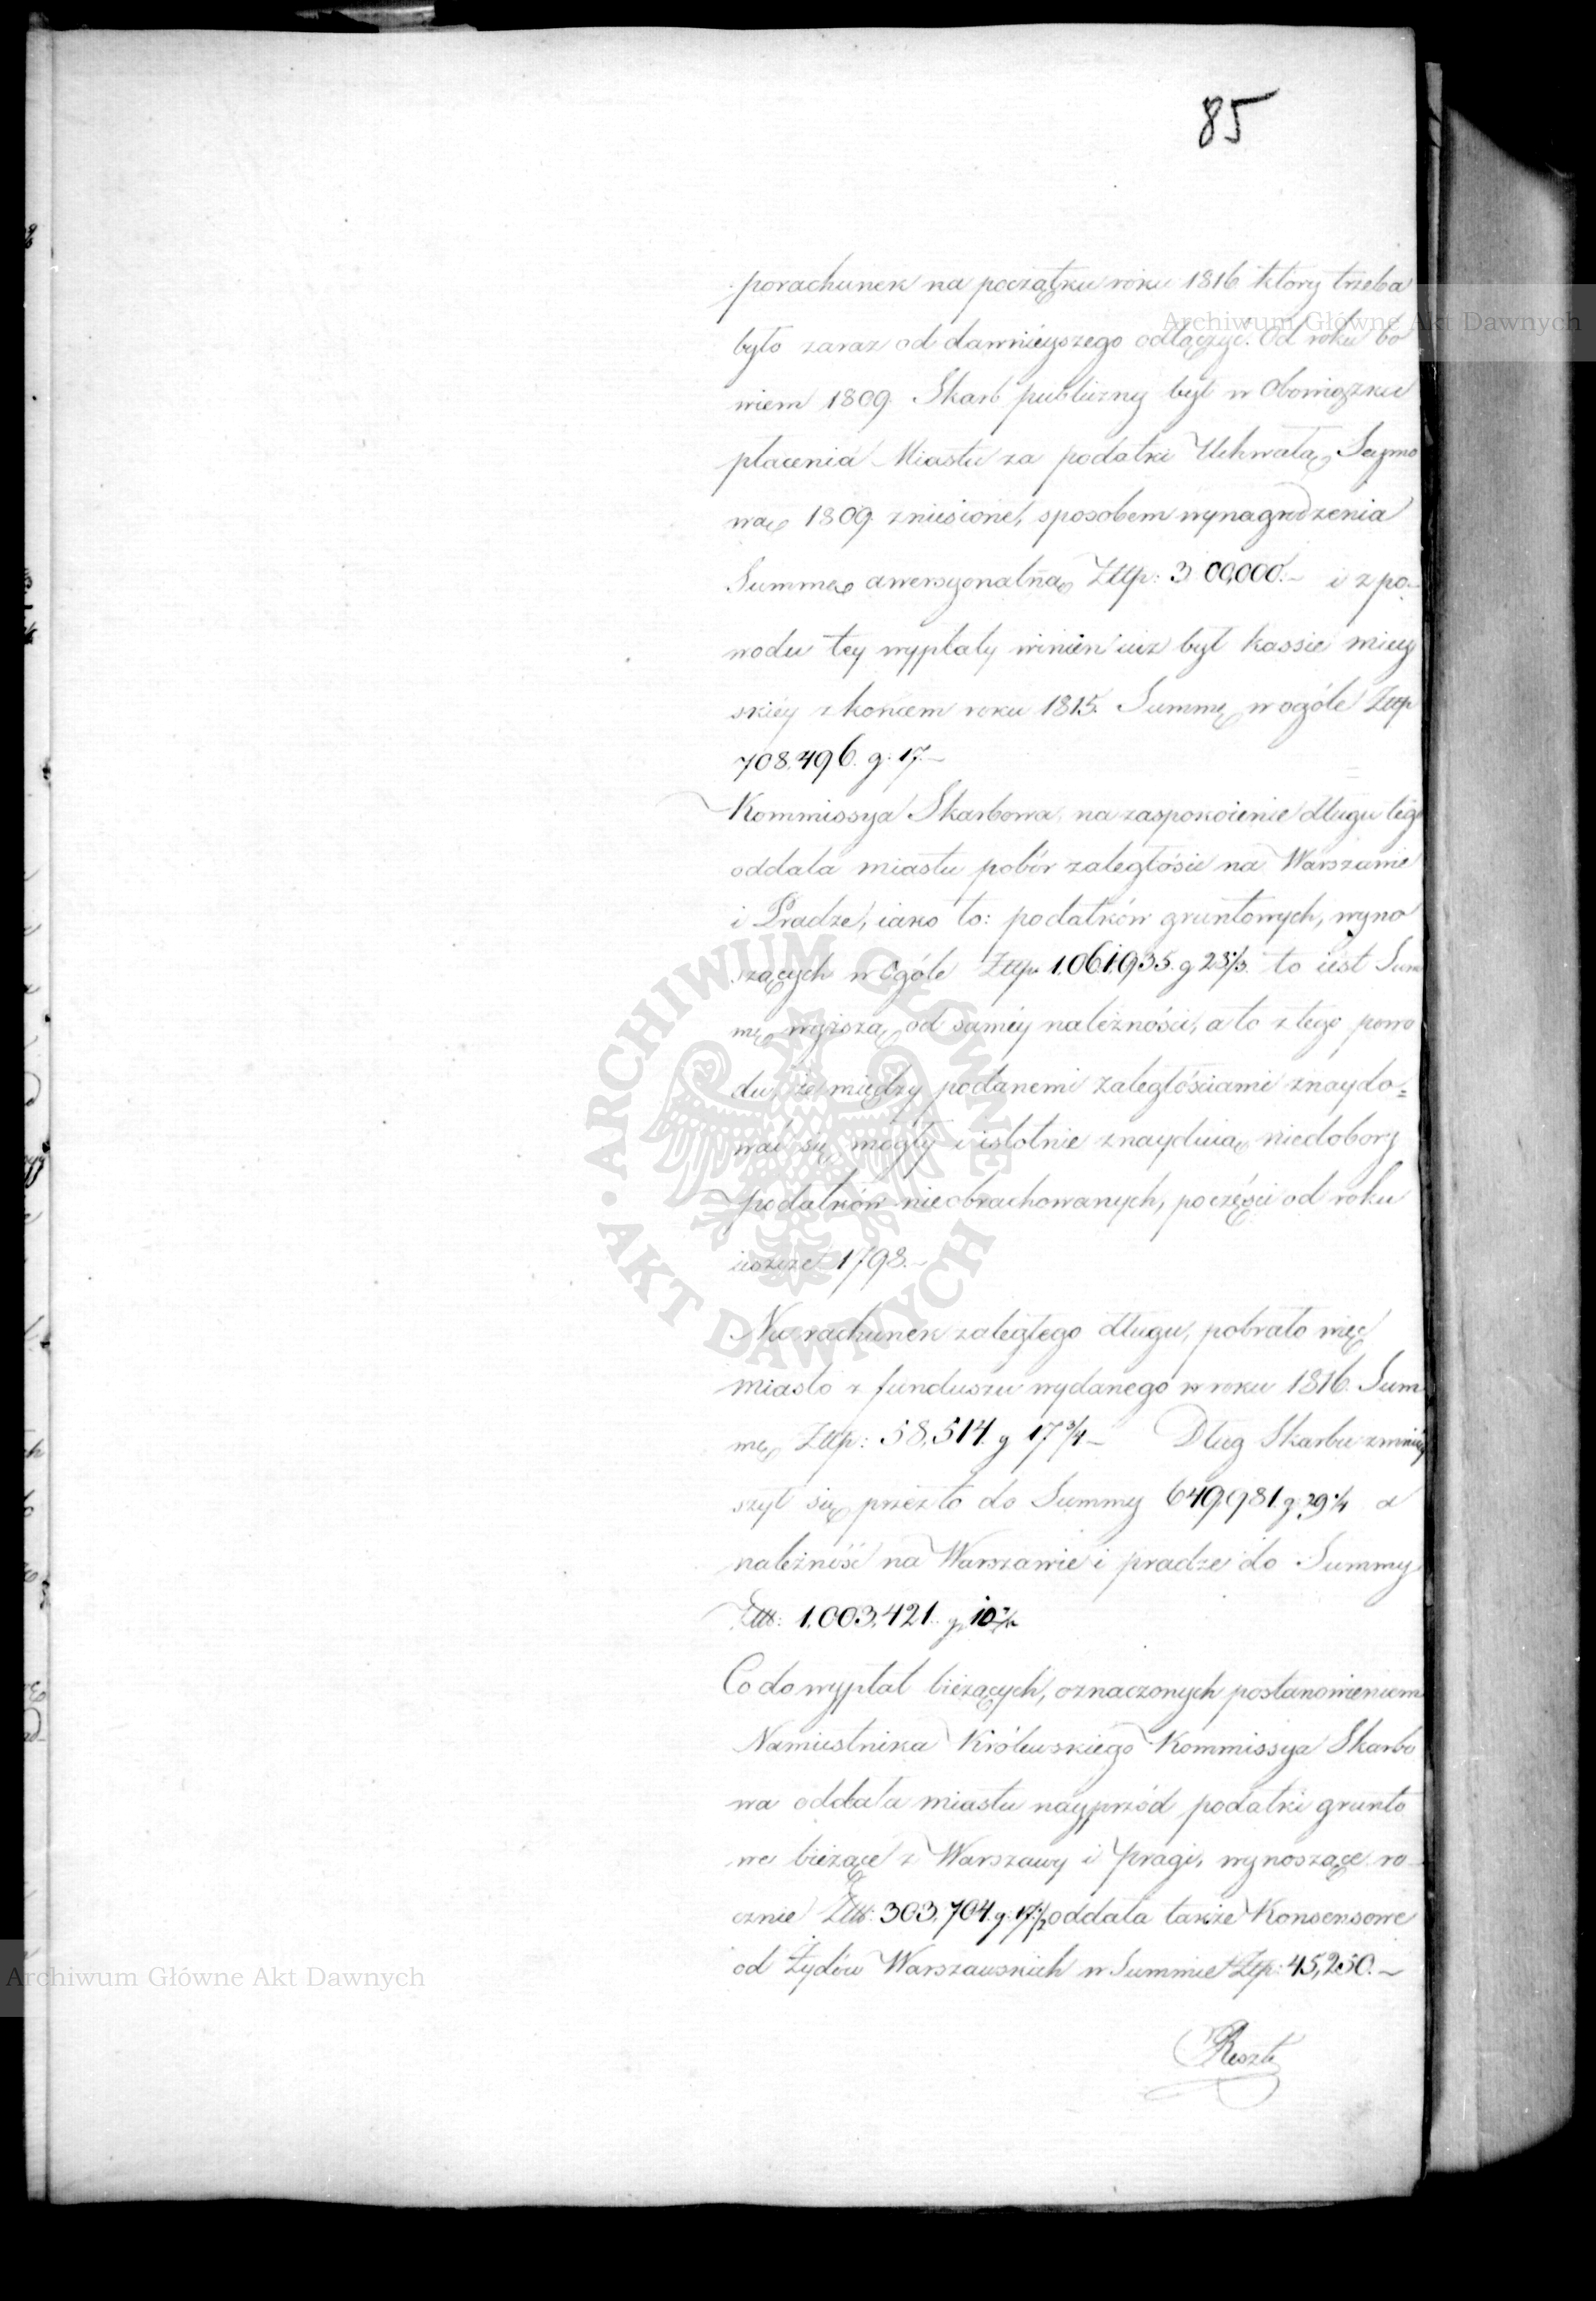 85
porachunek na początku roku 1816 który trzeba
było zaraz od dawnieyszego odłączyć. Od roku bo
wiem 1809. Skarb publiczny był w Obowiązku
płacenia Miastu za podatki Uchwałą Seymo
wą 1809. zniesione, sposobem wynagrodzenia
Summę awersyonalną Złłp: 300,000.– i z po-
wodu tey wypłaty winien iuż był kassie miey
skiéy z końcem roku 1815. Summę w ogóle Złłp
708,496. g: 17.–
Kommissya Skarbowa, na zaspokoienie długu tego
oddała miastu pobór zaległości na Warszawie
i Pradze, iako to: podatków gruntowych, wyno
szących w Ogóle Złłp. 1,061,935. g 25/3. to iest Sum
mę wyższą od saméy należności, a to z tego powo
du, że między podanemi zaległościami znaydo=
wać się mogły i istotnie znayduią niedobory
podatków nieobrachowanych, po części od roku
ieszcze 1798.–
Na rachunek zaległego długu, pobrało więc
miasto z funduszu wydanego w roku 1816. Sum
mę Złłp: 58,514. g 17 3/4 – Dług Skarbu zmniéy
szył się przez to do Summy 649,981. g 29 1/4 a
należność na Warszawie i pradze do Summy
Złł: 1,003,421. g 10
Co do wypłat bieżących, oznaczonych postanowieniem
Namiestnika Królewskiego Kommissya Skarbo
wa oddała miastu nayprzód podatki grunto
we bieżące z Warszawy i Pragi, wynoszące ro
cznie Złł: 303,704. g. 17 1/2 oddała także Konsensowe
od Żydów Warszawskich w Summie Złp: 45,250.–
Resztę
Archiwum Główne Akt Dawnych
Archiwum Główne Akt Dawnych
ARCHIWUM GŁÓWNE
AKT DAWNYCH